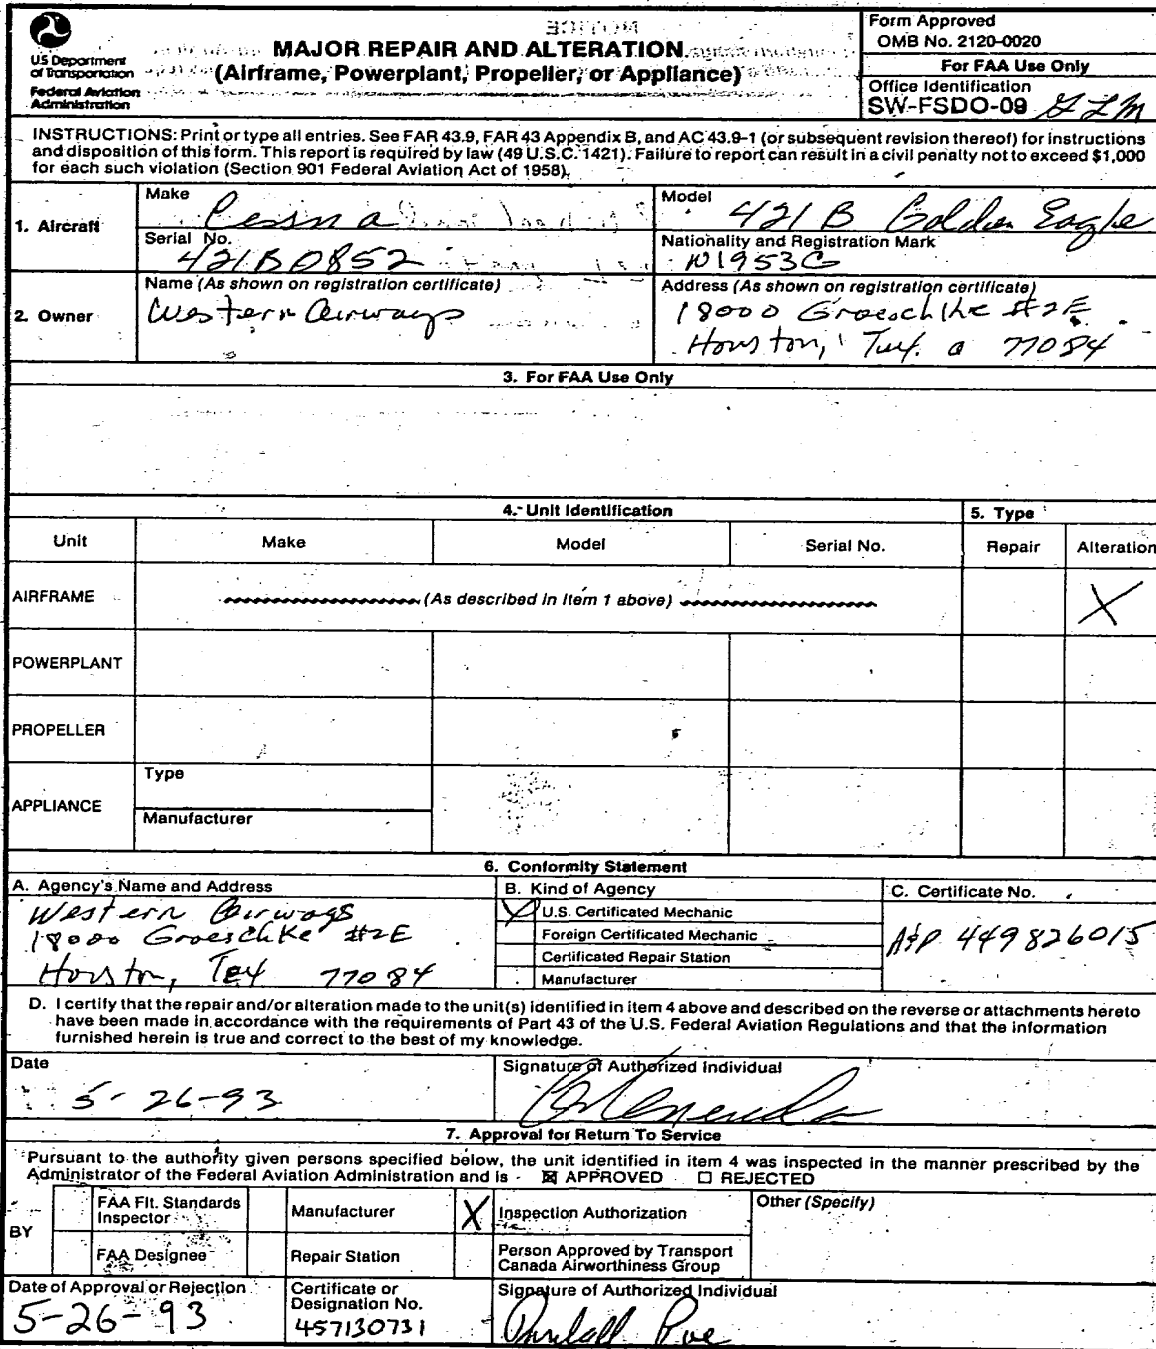 US Department
of Transportation
Federal Aviation
Administration
MAJOR REPAIR AND ALTERATION
(Airframe, Powerplant, Propeller, or Appliance)
Form Approved
OMB No. 2120-0020
For FAA Use Only
Office Identification
SW-FSDO-09
INSTRUCTIONS: Print or type all entries. See FAR 43.9, FAR 43 Appendix B, and AC 43.9-1 (or subsequent revision thereof) for instructions
and disposition of this form. This report is required by law (49 U.S.C. 1421). Failure to report can result in a civil penalty not to exceed $1,000
for each such violation (Section 901 Federal Aviation Act of 1958).
1. Aircraft
Make
Cessna
Model
421 B Golden Eagle
Serial No.
421B0852
Nationality and Registration Mark
N1953G
2. Owner
Name (As shown on registration certificate)
Western Airways
Address (As shown on registration certificate)
18000 Groeschke #2E
Houston, Tex. 77084
3. For FAA Use Only
4. Unit Identification
5. Type
Unit
Make
Model
Serial No.
Repair
Alteration
AIRFRAME
(As described in Item 1 above)
X
POWERPLANT
PROPELLER
APPLIANCE
Type
Manufacturer
6. Conformity Statement
A. Agency's Name and Address
Western Airways
18000 Groeschke #2E
Houston, Tex 77084
B. Kind of Agency
X U.S. Certificated Mechanic
Foreign Certificated Mechanic
Certificated Repair Station
Manufacturer
C. Certificate No.
A&P 449826015
D. I certify that the repair and/or alteration made to the unit(s) identified in item 4 above and described on the reverse or attachments hereto
have been made in accordance with the requirements of Part 43 of the U.S. Federal Aviation Regulations and that the information
furnished herein is true and correct to the best of my knowledge.
Date
5-26-93
Signature of Authorized Individual
7. Approval for Return To Service
Pursuant to the authority given persons specified below, the unit identified in item 4 was inspected in the manner prescribed by the
Administrator of the Federal Aviation Administration and is ☒ APPROVED ☐ REJECTED
BY
FAA Flt. Standards
Inspector
Manufacturer
X Inspection Authorization
Other (Specify)
FAA Designee
Repair Station
Person Approved by Transport
Canada Airworthiness Group
Date of Approval or Rejection
5-26-93
Certificate or
Designation No.
457130731
Signature of Authorized Individual